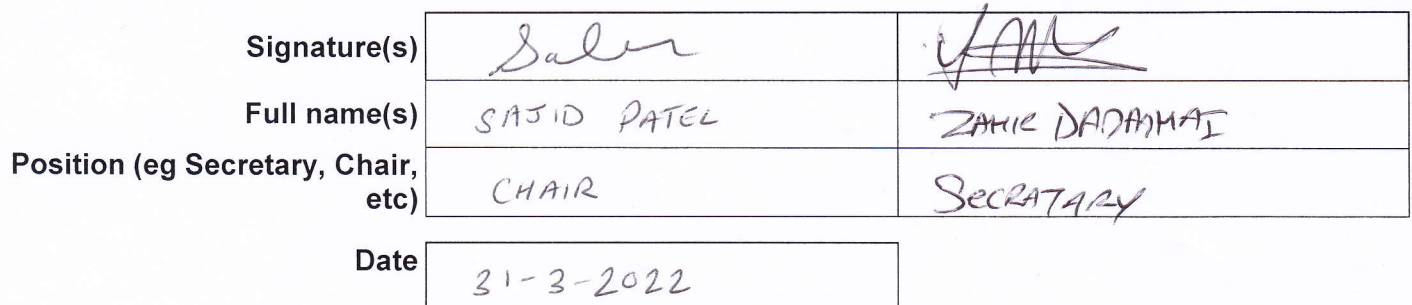 Signature(s)
Full name(s) SAJID PATEL ZAHIR
Position (eg Secretary, Chair,
etc) CHAIR SECRATARY
Date 31-3-2022